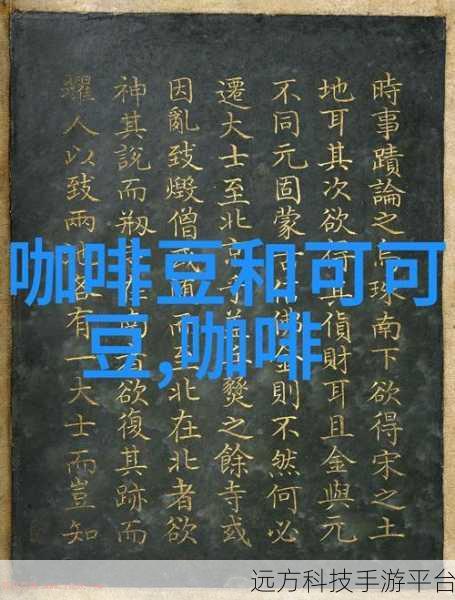 咖啡豆和可可
豆,咖啡
時事蹟論之珠南下欲得宋之土
地耳其次欲其貨財耳且金與元
不同元固蒙古佛金則不然何必
遷大士至北京燹之餘寺或
因亂致燬僧或而至北在北者欲
神其說而在南者欲復其跡而
耀人以致兩地各有一大士而豈知
远方科技手游平台